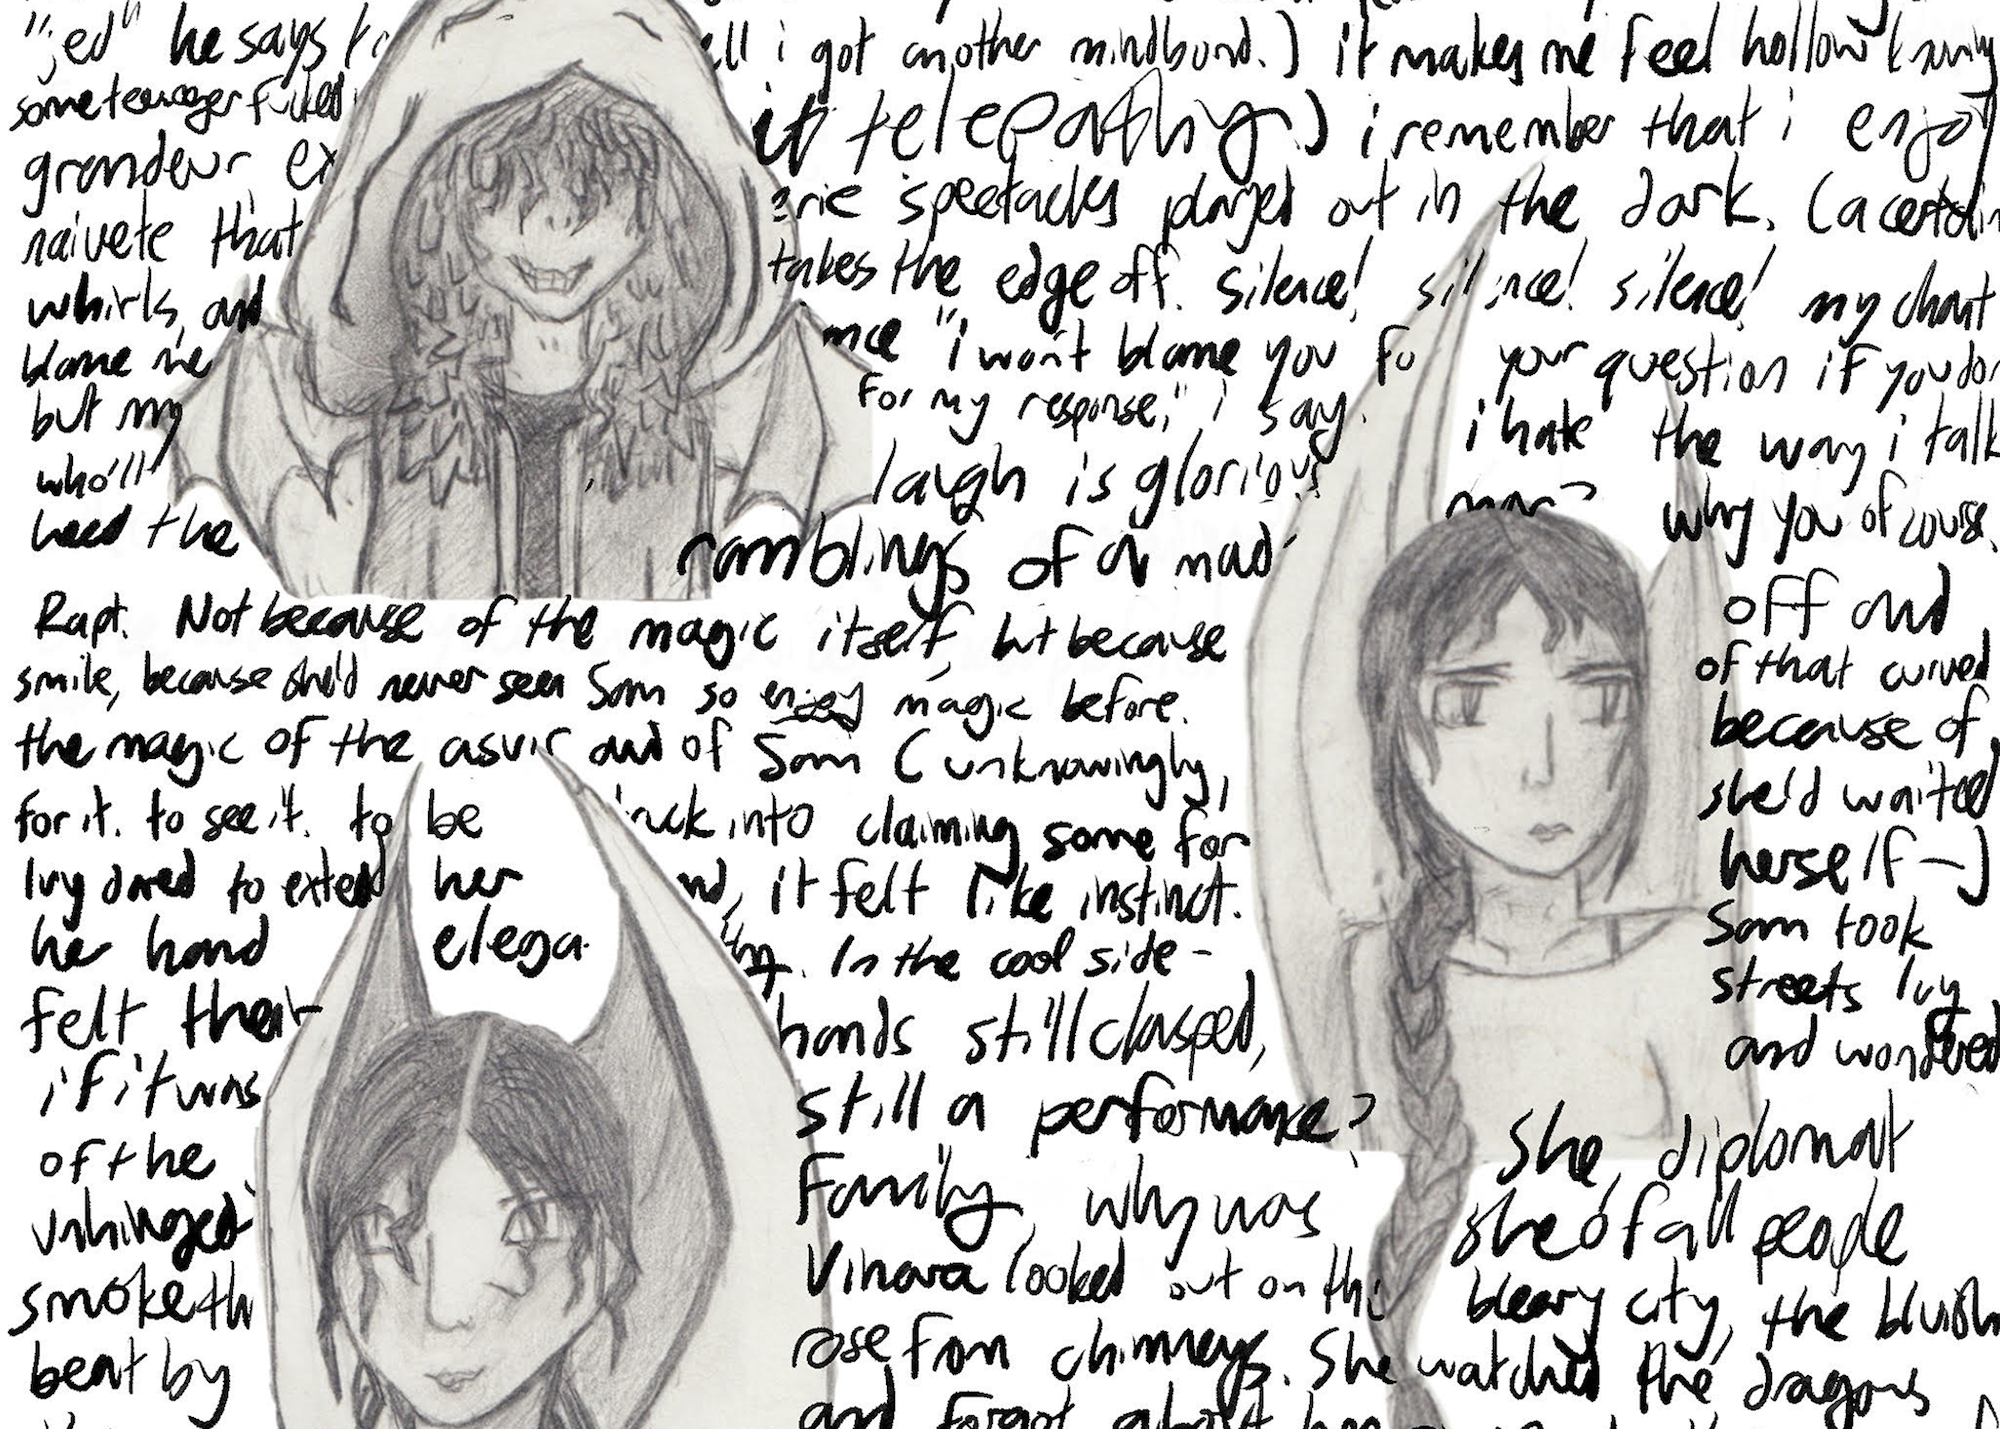 he says
ll i got another mindbond.) it makes me feel hollow
some teenager
it telepathy.) i remember that i enjoy
grandeur ex
erie spectacles played out in the dark. (a certain
naivete that
takes the edge off. silence! silence! silence! my chant
whirls, and
nce "i won't blame you fo your question if you don
blame me
for my response," i say. i hate the way i talk
but my
laugh is glorious why you of course,
who'll
heed the
ramblings of a mad- off and
Rapt. Not because of the magic itself, but because of that curved
smile, because she'd never seen Sam so enjoy magic before. because of
the magic of the asvir and of Sam (unknowingly, she'd waited
for it. to see it. to be uck into claiming some for herself-)
Ivy dared to extend her nd, it felt like instinct. Sam took
her hand elega . In the cool side- streets Ivy
felt their hands still clasped, and wondered
if it was still a performance? She, diplomat
of the family, why was she of all people
unhinged? Vinara looked out on the bleary city, the bluish
smoke th rose from chimneys. She watched the dragons
beat by and forgot about